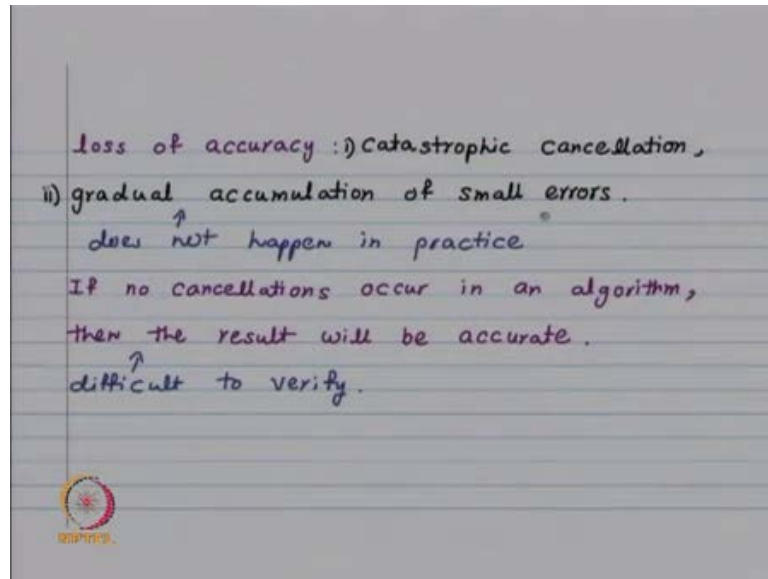 loss of accuracy : i) Catastrophic cancellation,
ii) gradual accumulation of small errors.
↑
does not happen in practice
If no cancellations occur in an algorithm,
then the result will be accurate.
↑
difficult to verify.
NPTEL